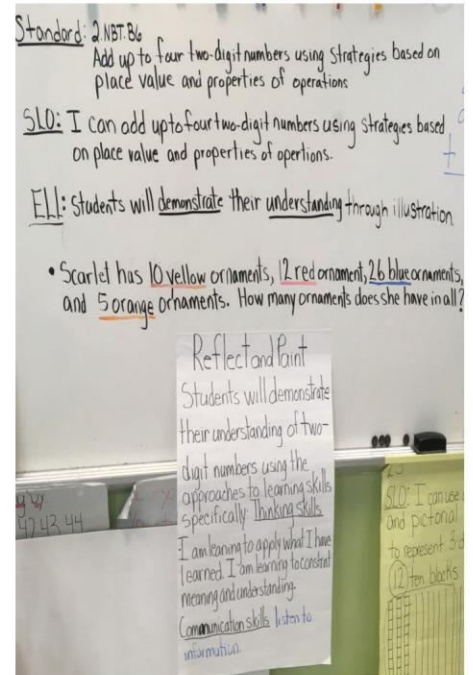 Standard: 2.NBT.B6
Add up to four two-digit numbers using strategies based on
place value and properties of operations
SLO: I can add up to four two-digit numbers using strategies based
on place value and properties of opertions.
ELL: Students will demonstrate their understanding through illustration
• Scarlet has 10 yellow ornaments, 12 red ornament, 26 blue ornaments,
and 5 orange ornaments. How many ornaments does she have in all?
Reflect and Paint
Students will demonstrate
their understanding of two-
digit numbers using the
approaches to learning skills
specifically: Thinking skills
I am learning to apply what I have
learned. I am learning to constrct
meaning and understanding.
Communication skills listen to
information.
42 43 44
SLO: I can use
and pictorial
to represent 3 d
12 ten blocks